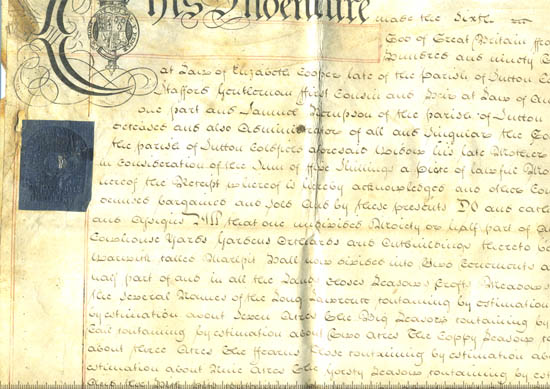 This Indenture made the Sixth
Geo of Great Britain
Hundred and ninety
at Law of Elizabeth Cooper late of the Parish of Sutton
Stafford Gentleman ffirst Cousin and Heir at Law of
one part and Samuel Kempson of the parish of Sutton
deceased and also Administrator of all and Singular the
the parish of Sutton Coldfield aforesaid Widow his late Mother
in Consideration of the Sum of five Shillings a Piece of lawful
whereof the Receipt whereof is hereby acknowledged and other
demised bargained and sold And by these presents DO and
and Assigns All that one undivided Moiety or half part of
Cowhouse Yards Gardens Orchards and Outbuildings thereto
Warwick called Marlpit Hall now divided into two Tenements
half part of and in all the Lands Closes Leasows Crofts Meadows
the Several Names of the Long Lawrence containing by estimation
by estimation about Seven Acres The Big Leasow containing by
containing by estimation about two Acres The Coppy Leasow
about three Acres The Close containing by estimation
estimation about Nine Acres The Gorsty Leasow containing by
And the